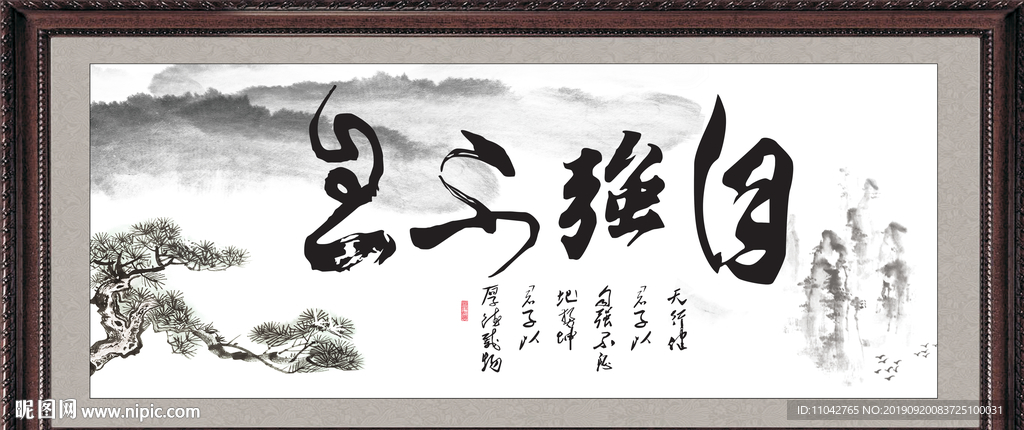 自強不息
天行健
君子以
自强不息
地势坤
君子以
厚德载物
昵图网 www.nipic.com
ID:11042765 NO:20190920083725100031